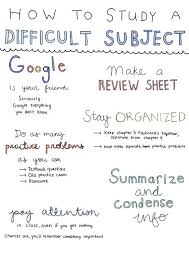 HOW TO STUDY A
DIFFICULT SUBJECT
Google
is your friend
Seriously
Google everything
you don't know
Make a
REVIEW SHEET
Stay ORGANIZED
Keep chapter 5 flashcards together,
separate from chapter 4
Keep notes separate from practice problems
Do as many
practice problems
as you can
→ Textbook questions
→ Old practice exams
→ Homework
Summarize
and
condense
info
pay attention
in class, even if you get nothing
Chances are, you'll remember something important